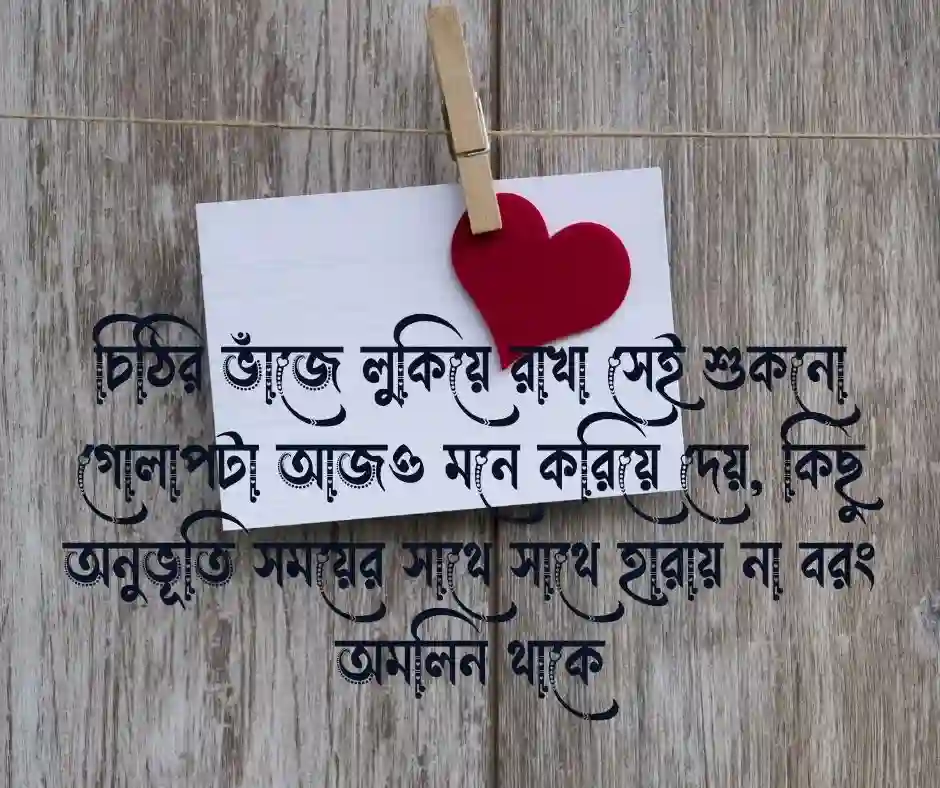 চিঠির ভাঁজে লুকিয়ে রাখা সেই শুকনো
গোলাপটা আজও মনে করিয়ে দেয়, কিছু
অনুভূতি সময়ের সাথে সাথে হারায় না বরং
অমলিন থাকে